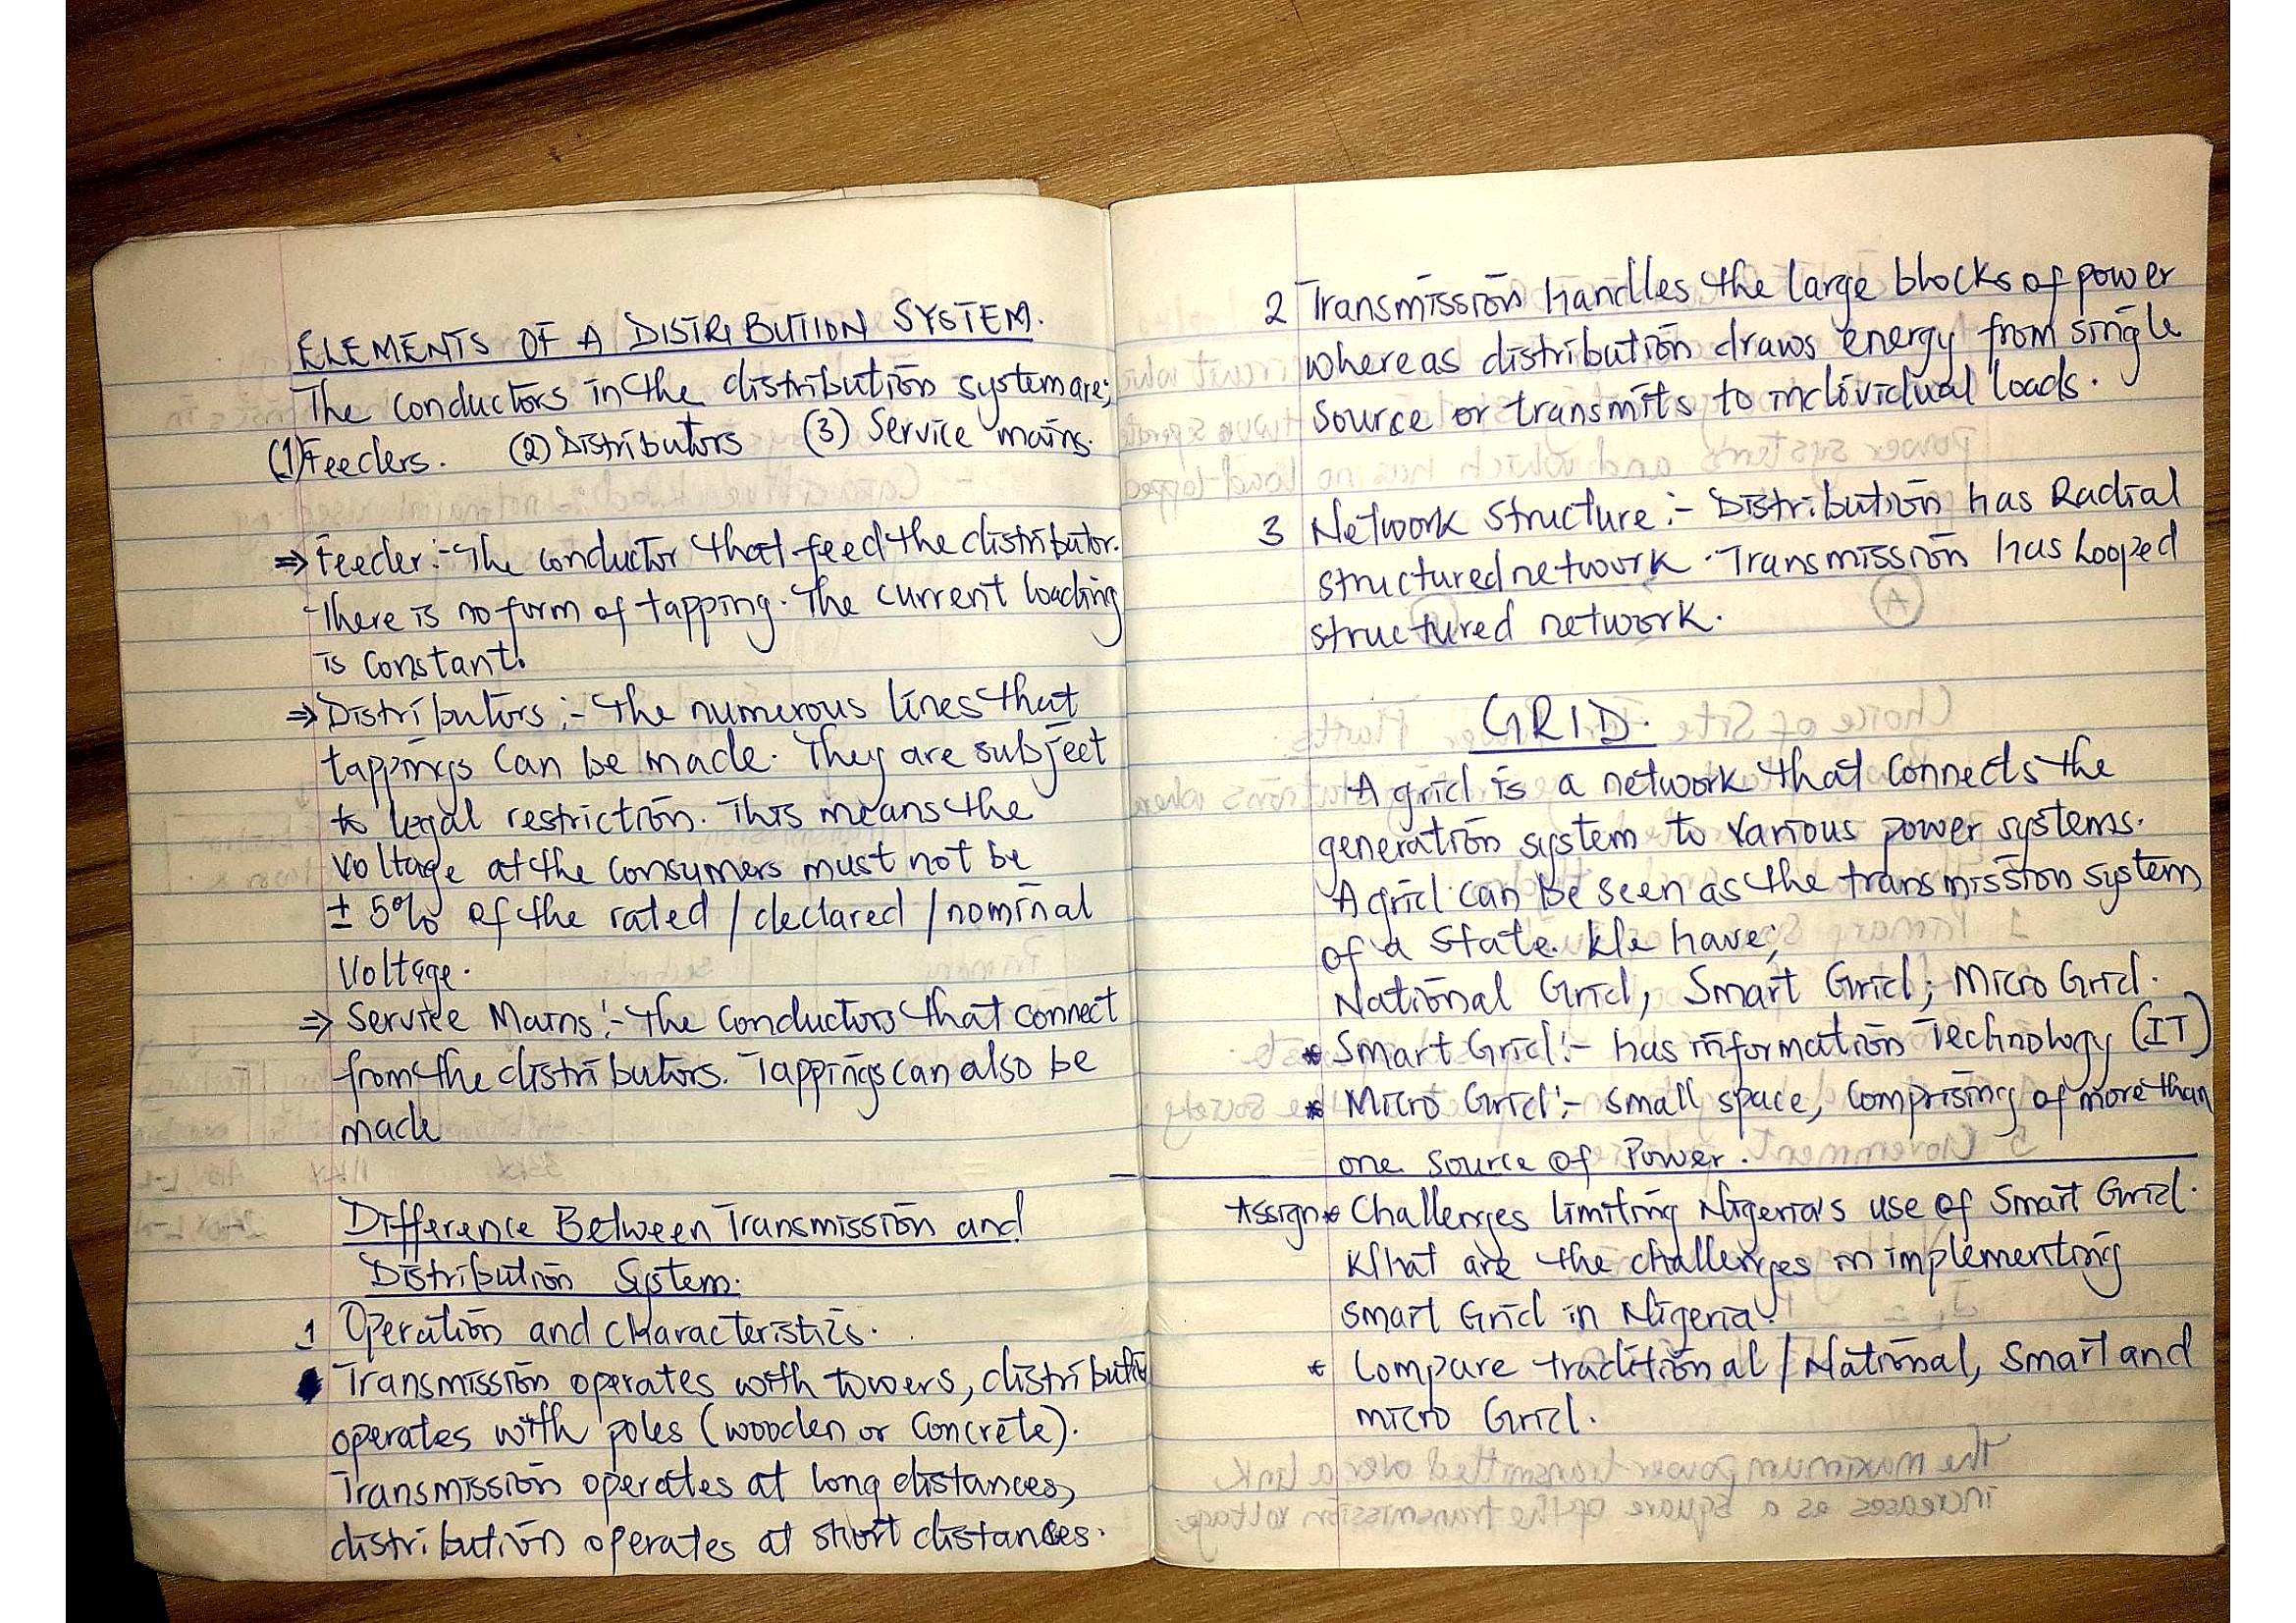 ELEMENTS OF A DISTRIBUTION SYSTEM.
The conductors in the distribution system are;
(1) Feeders. (2) Distributors (3) Service mains.
⇒ Feeder :- The conductor that feed the distributor.
There is no form of tapping. The current loading
is constant.
⇒ Distributors :- The numerous lines that
tappings can be made. They are subject
to legal restriction. This means the
voltage at the consumers must not be
± 5% of the rated / declared / nominal
voltage.
⇒ Service Mains :- The conductors that connect
from the distributors. Tappings can also be
made
Difference Between Transmission and
Distribution System.
1 Operation and characteristics.
Transmission operates with towers, distribution
operates with poles (wooden or concrete).
Transmission operates at long distances,
distribution operates at short distances.
2 Transmission handles the large blocks of power
whereas distribution draws energy from single
source or transmits to individual loads.
3 Network Structure :- Distribution has Radial
structured network. Transmission has Looped
structured network.
GRID.
A grid is a network that connects the
generation system to various power systems.
A grid can be seen as the transmission system
of a State. We have;
National Grid, Smart Grid; Micro Grid.
* Smart Grid :- has information Technology (IT)
* Micro Grid :- small space, comprising of more than
one source of Power.
Assign * Challenges limiting Nigeria's use of Smart Grid.
What are the challenges in implementing
smart Grid in Nigeria?
* Compare traditional / National, Smart and
micro Grid.